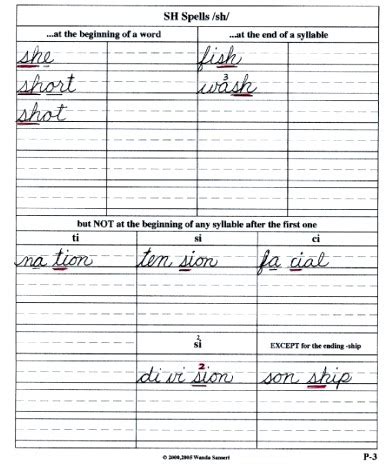 SH Spells /sh/
...at the beginning of a word ...at the end of a syllable
she fish
short wa³sh
shot
but NOT at the beginning of any syllable after the first one
ti si ci
na tion ten sion fa cial
si² EXCEPT for the ending -ship
di vi si²on son ship
© 2000,2005 Wanda Sanseri P-3